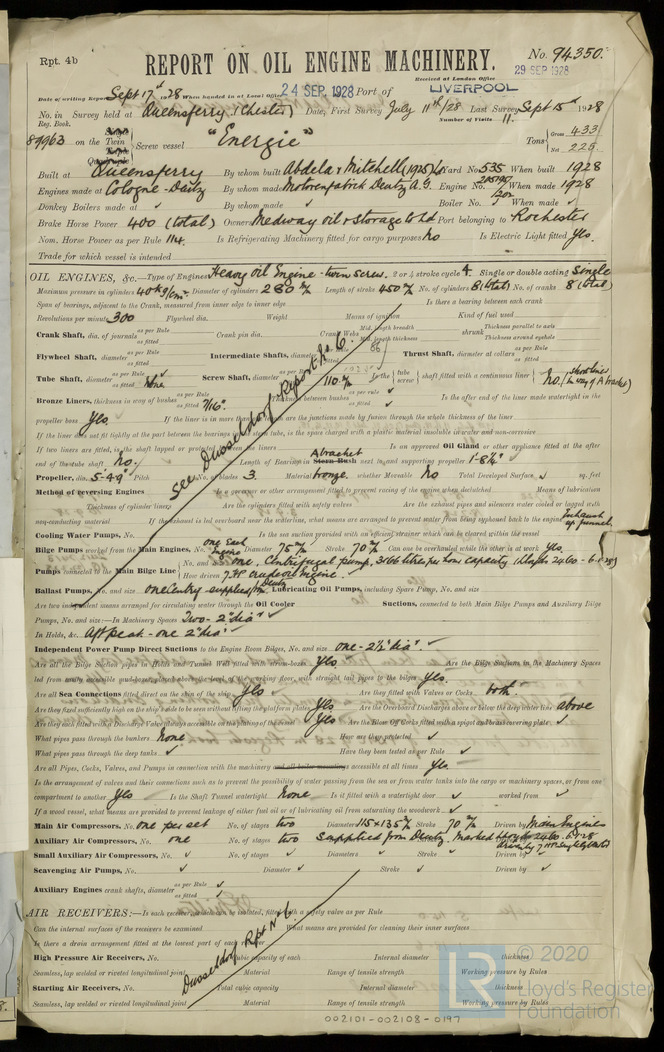 Rpt. 4b
REPORT ON OIL ENGINE MACHINERY.
No. 94350.
Received at London Office 29 SEP 1928
Date of writing Report Sept 17th 1928 When handed in at Local Office 24 SEP. 1928 Port of LIVERPOOL
No. in Survey held at Queensferry (Chester) Date, First Survey July 11th/28 Last Survey Sept 15th 1928
Reg. Book. Number of Visits 11
89963 on the Twin Screw vessel "Energie" Tons Gross 433
Net 225
Built at Queensferry By whom built Abdela & Mitchell (1925) Ld Yard No. 535 When built 1928
Engines made at Cologne-Deutz By whom made Motorenfabrik Deutz A.G. Engine No. When made 1928
Donkey Boilers made at ✓ By whom made ✓ Boiler No. ✓ When made ✓
Brake Horse Power 400 (total) Owners Medway Oil & Storage Co Ld Port belonging to Rochester
Nom. Horse Power as per Rule 114. Is Refrigerating Machinery fitted for cargo purposes No Is Electric Light fitted Yes.
Trade for which vessel is intended
OIL ENGINES, &c.—Type of Engines Heavy Oil Engine - twin screw. 2 or 4 stroke cycle 4. Single or double acting Single
Maximum pressure in cylinders 40 kg/cm² Diameter of cylinders 280 m/m Length of stroke 450 m/m No. of cylinders 8 (total) No. of cranks 8 (total)
Span of bearings, adjacent to the Crank, measured from inner edge to inner edge Is there a bearing between each crank
Revolutions per minute 300 Flywheel dia. Weight Means of ignition Kind of fuel used
Crank Shaft, dia. of journals as per Rule as fitted Crank pin dia. Crank Webs Mid. length breadth Mid. length thickness shrunk Thickness parallel to axis Thickness around eyehole
Flywheel Shaft, diameter as per Rule as fitted Intermediate Shafts, diameter as fitted Thrust Shaft, diameter at collars as per Rule as fitted
See Dusseldorf Report No 6.
Tube Shaft, diameter as per Rule as fitted None Screw Shaft, diameter as fitted 110 m/m Is the tube screw shaft fitted with a continuous liner No. (short liner in way of A bracket)
Bronze Liners, thickness in way of bushes as per Rule as fitted 7/16" as per rule ✓ as fitted ✓ Is the after end of the liner made watertight in the
propeller boss Yes. If the liner is in more than are the junctions made by fusion through the whole thickness of the liner
If the liner does not fit tightly at the part between the bearings in the stern tube, is the space charged with a plastic material insoluble in water and non-corrosive
If two liners are fitted, is the shaft lapped or protected between the liners Is an approved Oil Gland or other appliance fitted at the after
end of the tube shaft No. Length of Bearing in A bracket Stern Bush next to and supporting propeller 1'-8¼" ✓
Propeller, dia. 5'-4.9" Pitch No. of blades 3. Material bronze. whether Moveable No Total Developed Surface sq. feet
Method of reversing Engines Is a governor or other arrangement fitted to prevent racing of the engine when declutched Means of lubrication
Thickness of cylinder liners Are the cylinders fitted with safety valves Are the exhaust pipes and silencers water cooled or lagged with
non-conducting material If the exhaust is led overboard near the waterline, what means are arranged to prevent water from being syphoned back to the engine Exhaust up funnel
Cooling Water Pumps, No. Is the sea suction provided with an efficient strainer which can be cleared within the vessel
Bilge Pumps worked from the Main Engines, No. one each Engine Diameter 75 m/m Stroke 70 m/m Can one be overhauled while the other is at work Yes.
Pumps connected to the Main Bilge Line No. and Size one. Centrifugal pump, 3166 litres per hour capacity
How driven 7 HP crude oil Engine.
Ballast Pumps, No. and size one Centry - supplied fm Deutz Lubricating Oil Pumps, including Spare Pump, No. and size
Are two independent means arranged for circulating water through the Oil Cooler Suctions, connected to both Main Bilge Pumps and Auxiliary Bilge
Pumps, No. and size:—In Machinery Spaces Two - 2" dia ✓
In Holds, &c. Aft peak - one 2" dia ✓
Independent Power Pump Direct Suctions to the Engine Room Bilges, No. and size one - 2½" dia. ✓
Are all the Bilge Suction pipes in Holds and Tunnel Well fitted with strum-boxes Yes Are the Bilge Suctions in the Machinery Spaces
led from easily accessible mud-boxes, placed above the level of the working floor, with straight tail pipes to the bilges Yes.
Are all Sea Connections fitted direct on the skin of the ship Yes ✓ Are they fitted with Valves or Cocks both ✓
Are they fixed sufficiently high on the ship's side to be seen without lifting the platform plates Yes Are the Overboard Discharges above or below the deep water line above
Are they each fitted with a Discharge Valve always accessible on the plating of the vessel Yes Are the Blow Off Cocks fitted with a spigot and brass covering plate ✓
What pipes pass through the bunkers None How are they protected ✓
What pipes pass through the deep tanks ✓ Have they been tested as per Rule ✓
Are all Pipes, Cocks, Valves, and Pumps in connection with the machinery and all boiler mountings accessible at all times Yes
Is the arrangement of valves and their connections such as to prevent the possibility of water passing from the sea or from water tanks into the cargo or machinery spaces, or from one
compartment to another Yes Is the Shaft Tunnel watertight None Is it fitted with a watertight door ✓ worked from ✓
If a wood vessel, what means are provided to prevent leakage of either fuel oil or of lubricating oil from saturating the woodwork ✓
Main Air Compressors, No. one per set No. of stages two Diameters 115 x 135 m/m Stroke 70 m/m Driven by Main Engines
Auxiliary Air Compressors, No. one No. of stages two Supplied from Deutz. Marked Lloyds 2460. 6.1.28 Driven by
Small Auxiliary Air Compressors, No. ✓ No. of stages ✓ Diameters ✓ Stroke ✓ Driven by ✓
Scavenging Air Pumps, No. ✓ Diameter ✓ Stroke ✓ Driven by ✓
Auxiliary Engines crank shafts, diameter as per Rule ✓ as fitted ✓
AIR RECEIVERS:—Is each receiver, which can be isolated, fitted with a safety valve as per Rule
Can the internal surfaces of the receivers be examined What means are provided for cleaning their inner surfaces
Is there a drain arrangement fitted at the lowest part of each receiver
Dusseldorf Rpt No 6.
High Pressure Air Receivers, No. Cubic capacity of each Internal diameter thickness
Seamless, lap welded or riveted longitudinal joint Material Range of tensile strength Working pressure by Rules
Starting Air Receivers, No. Total cubic capacity Internal diameter thickness
Seamless, lap welded or riveted longitudinal joint Material Range of tensile strength Working pressure by Rules
© 2020
LR
Lloyd's Register
Foundation
002101-002108-0197